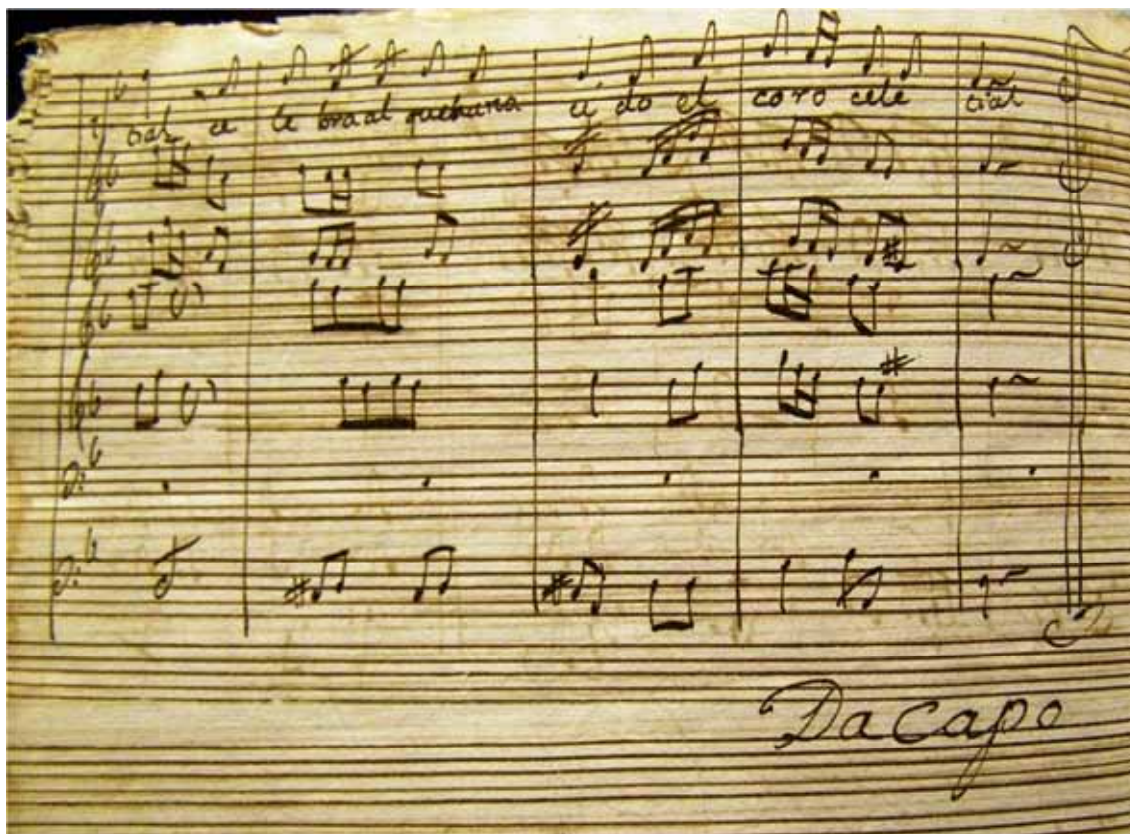 tial ce le braal quehana ci do el coro cele tial
Dacapo